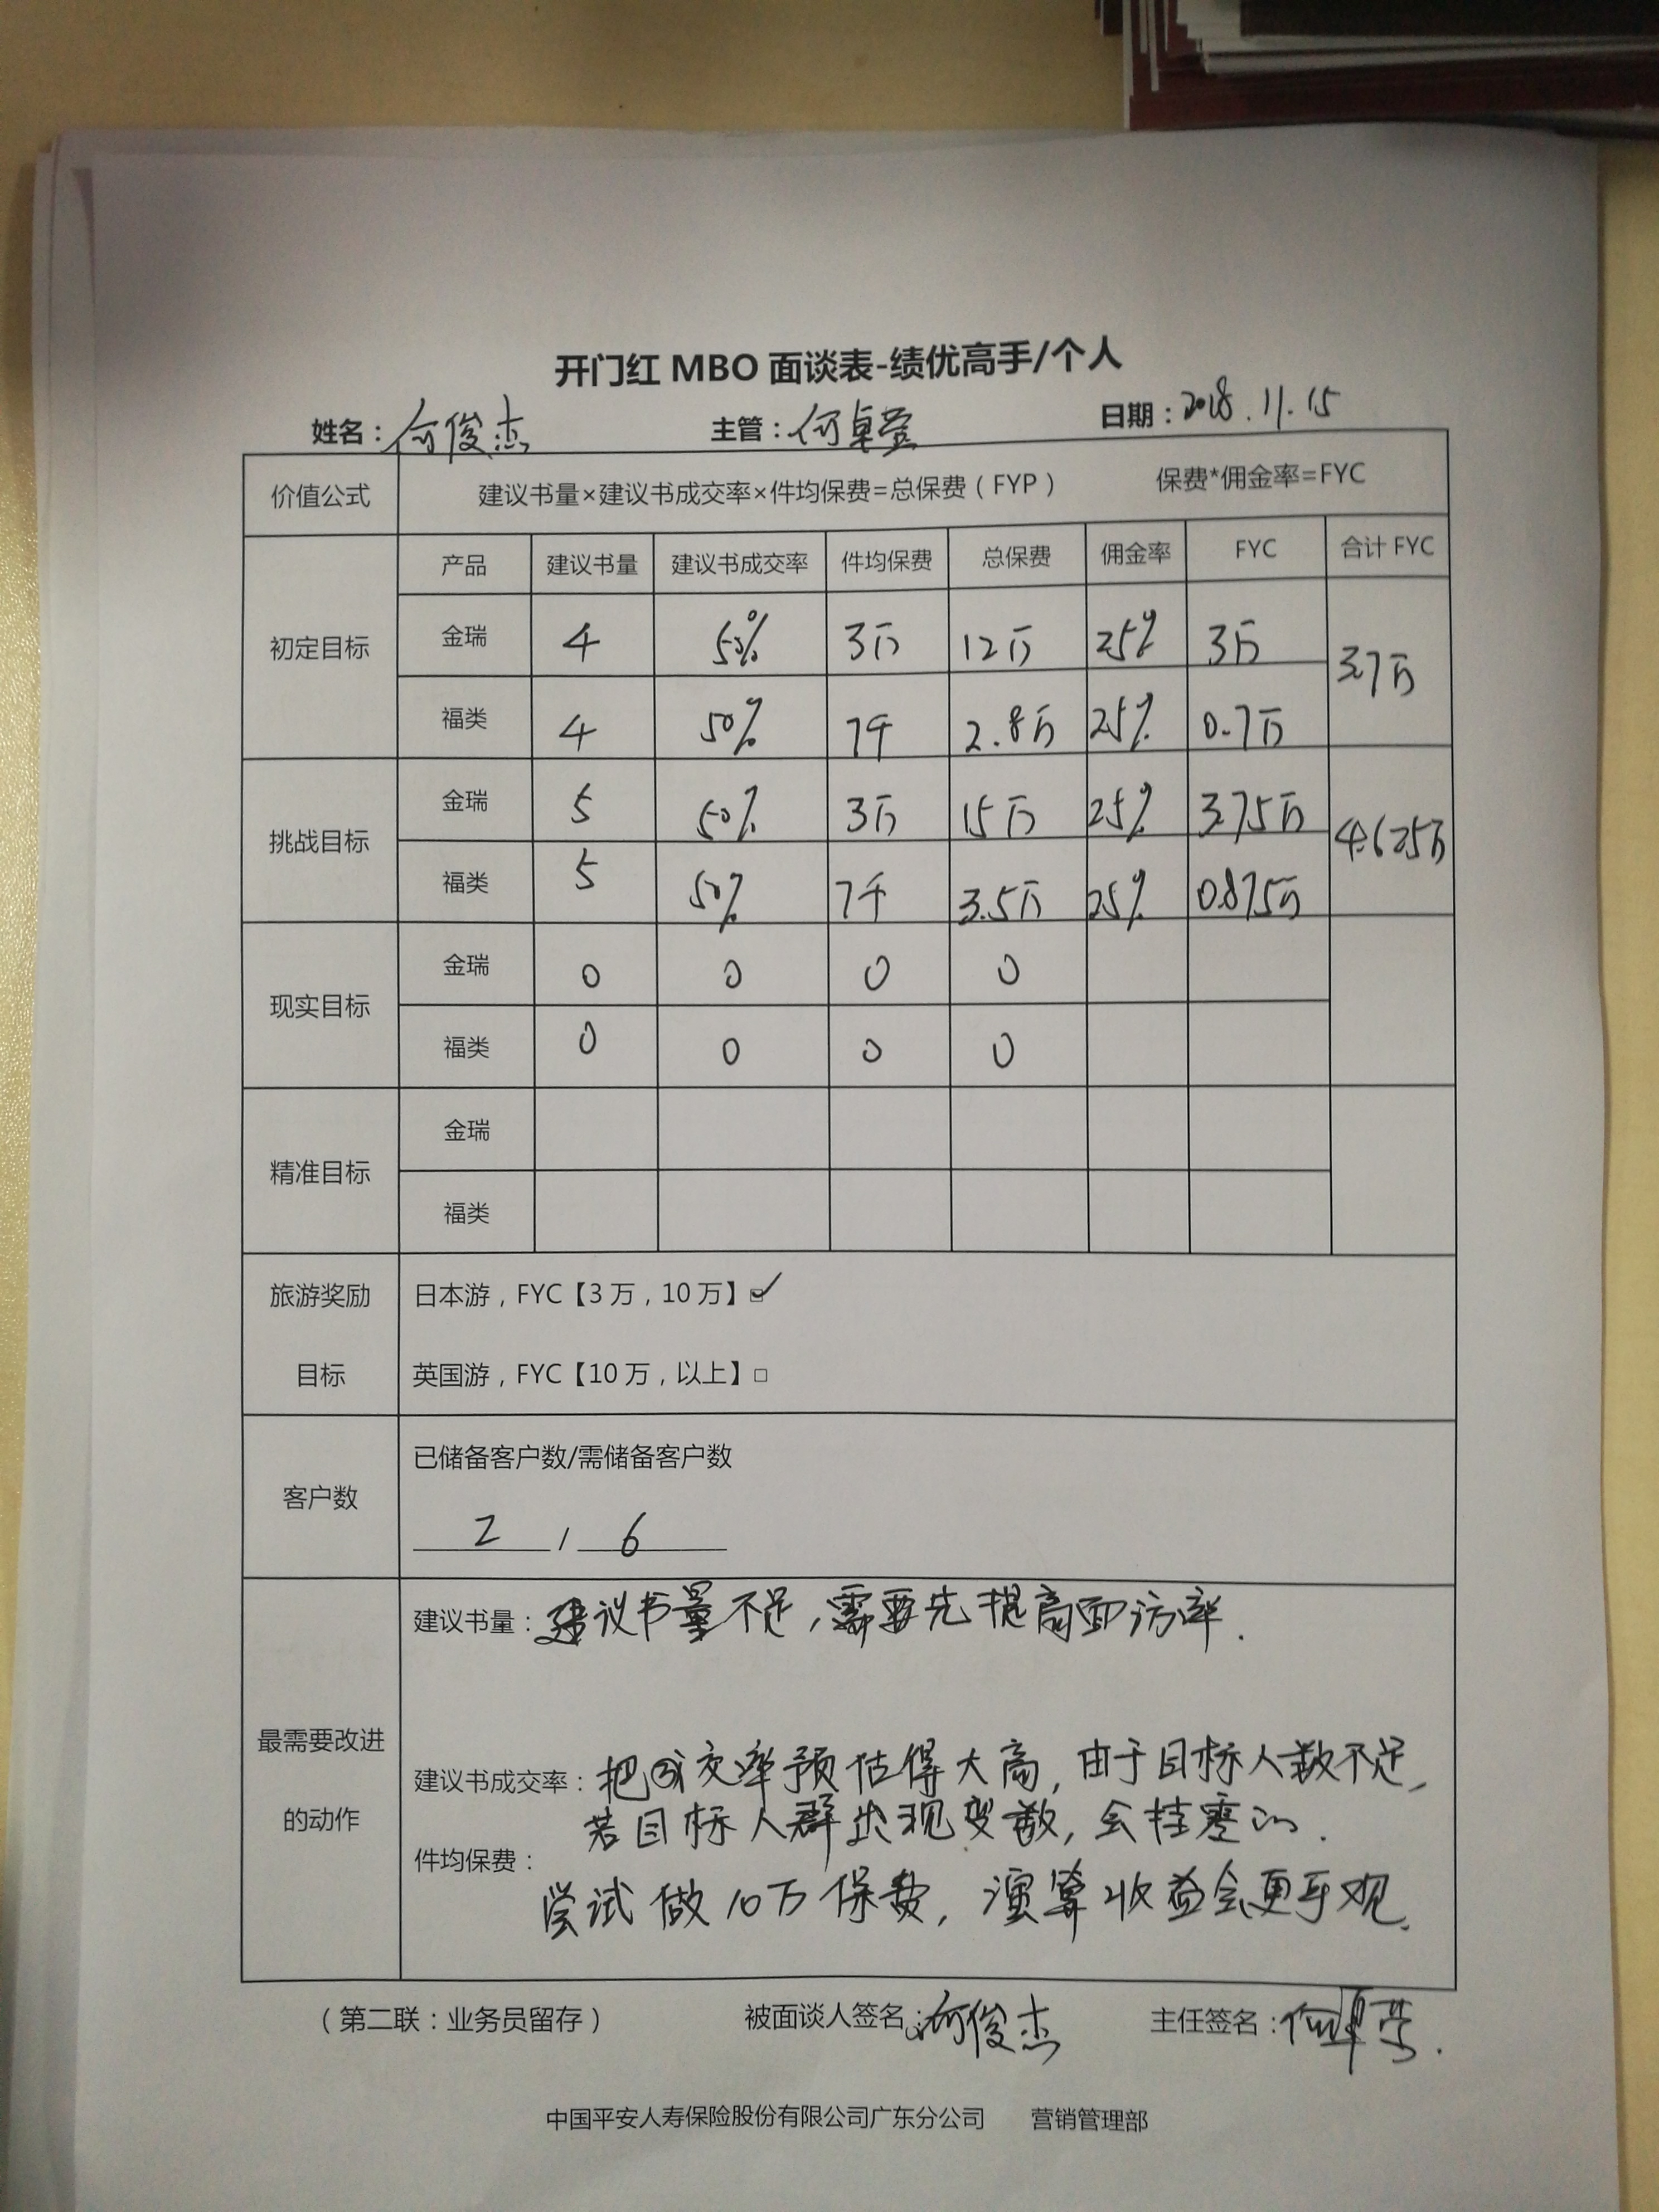 开门红 MBO 面谈表-绩优高手/个人
姓名：何俊杰 主管：何卓莹 日期：2018.11.15
价值公式 建议书量×建议书成交率×件均保费=总保费（FYP） 保费*佣金率=FYC
产品 建议书量 建议书成交率 件均保费 总保费 佣金率 FYC 合计 FYC
初定目标 金瑞 4 50% 3万 12万 25% 3万 3.7万
福类 4 50% 7千 2.8万 25% 0.7万
挑战目标 金瑞 5 50% 3万 15万 25% 3.75万 4.625万
福类 5 50% 7千 3.5万 25% 0.875万
现实目标 金瑞 0 0 0 0
福类 0 0 0 0
精准目标 金瑞
福类
旅游奖励 日本游，FYC【3万，10万】☑
目标 英国游，FYC【10万，以上】□
客户数 已储备客户数/需储备客户数
2 / 6
最需要改进
的动作
建议书量：建议书量不足，需要先提高面访率.
建议书成交率：把成交率预估得太高，由于目标人数不足，
若目标人群出现变数，会挂零的.
件均保费：
尝试做10万保费，演算收益会更可观.
（第二联：业务员留存） 被面谈人签名：何俊杰 主任签名：何卓莹.
中国平安人寿保险股份有限公司广东分公司 营销管理部